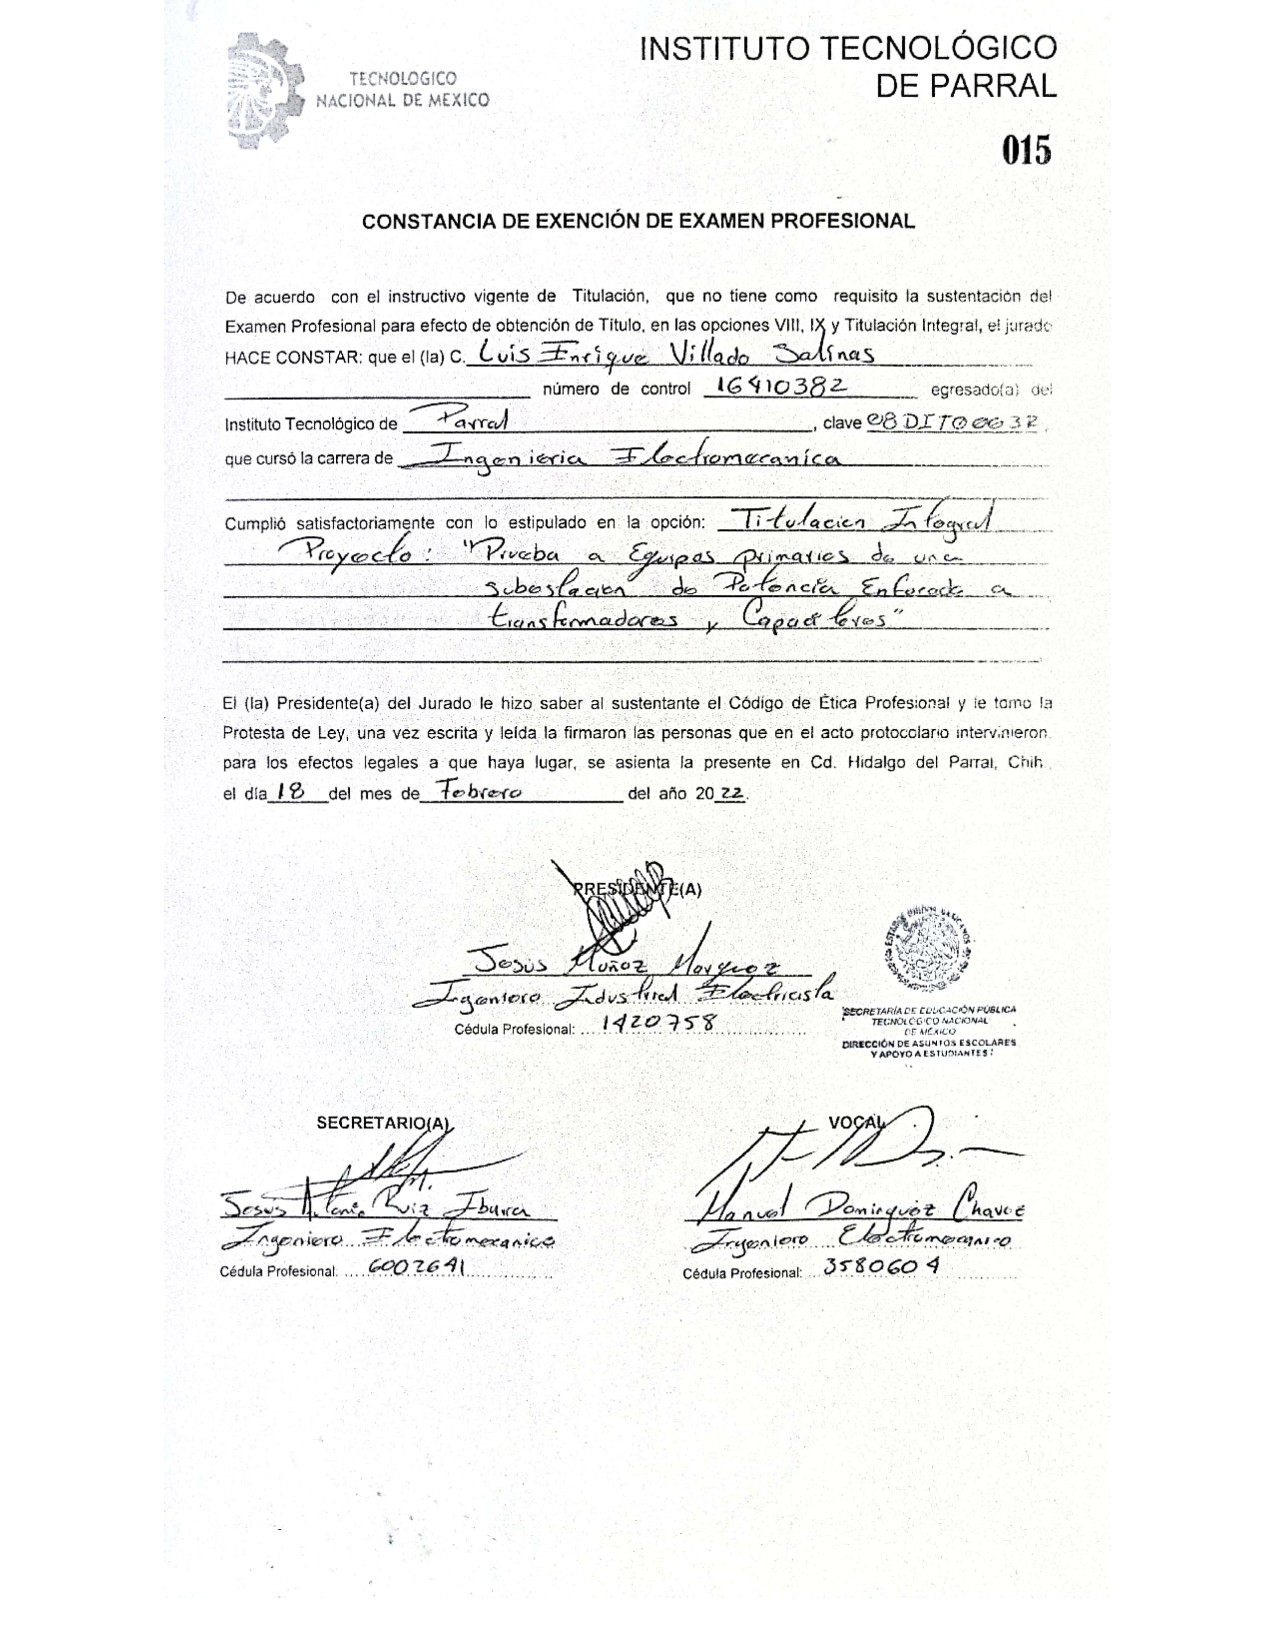 TECNOLOGICO
NACIONAL DE MEXICO
INSTITUTO TECNOLÓGICO
DE PARRAL
015
CONSTANCIA DE EXENCIÓN DE EXAMEN PROFESIONAL
De acuerdo con el instructivo vigente de Titulación, que no tiene como requisito la sustentación del
Examen Profesional para efecto de obtención de Título, en las opciones VIII, IX y Titulación Integral, el jurado
HACE CONSTAR: que el (la) C. Luis Enrique Villado Salinas
número de control 16410382 egresado(a) del
Instituto Tecnológico de Parral, clave 08DIT0003Z,
que cursó la carrera de Ingenieria Electromecanica
Cumplió satisfactoriamente con lo estipulado en la opción: Titulacion Integral
Proyecto: "Prueba a Equipos primarios de una
subestacion de Potencia Enfocado a
transformadores y Capacitores"
El (la) Presidente(a) del Jurado le hizo saber al sustentante el Código de Ética Profesional y le tomo la
Protesta de Ley, una vez escrita y leída la firmaron las personas que en el acto protocolario intervinieron
para los efectos legales a que haya lugar, se asienta la presente en Cd. Hidalgo del Parral, Chih.
el día 18 del mes de Febrero del año 2022.
PRESIDENTE(A)
Jesús Muñoz Marquez
Ingeniero Industrial Electricista
Cédula Profesional: 1420758
ESTADOS UNIDOS MEXICANOS
SECRETARÍA DE EDUCACIÓN PÚBLICA
TECNOLÓGICO NACIONAL
DE MÉXICO
DIRECCIÓN DE ASUNTOS ESCOLARES
Y APOYO A ESTUDIANTES
SECRETARIO(A)
Jesus Antonio Ruiz Ibarra
Ingeniero Electromecanico
Cédula Profesional: 6002641
VOCAL
Manuel Dominguez Chavez
Ingeniero Electromecanico
Cédula Profesional: 3580604